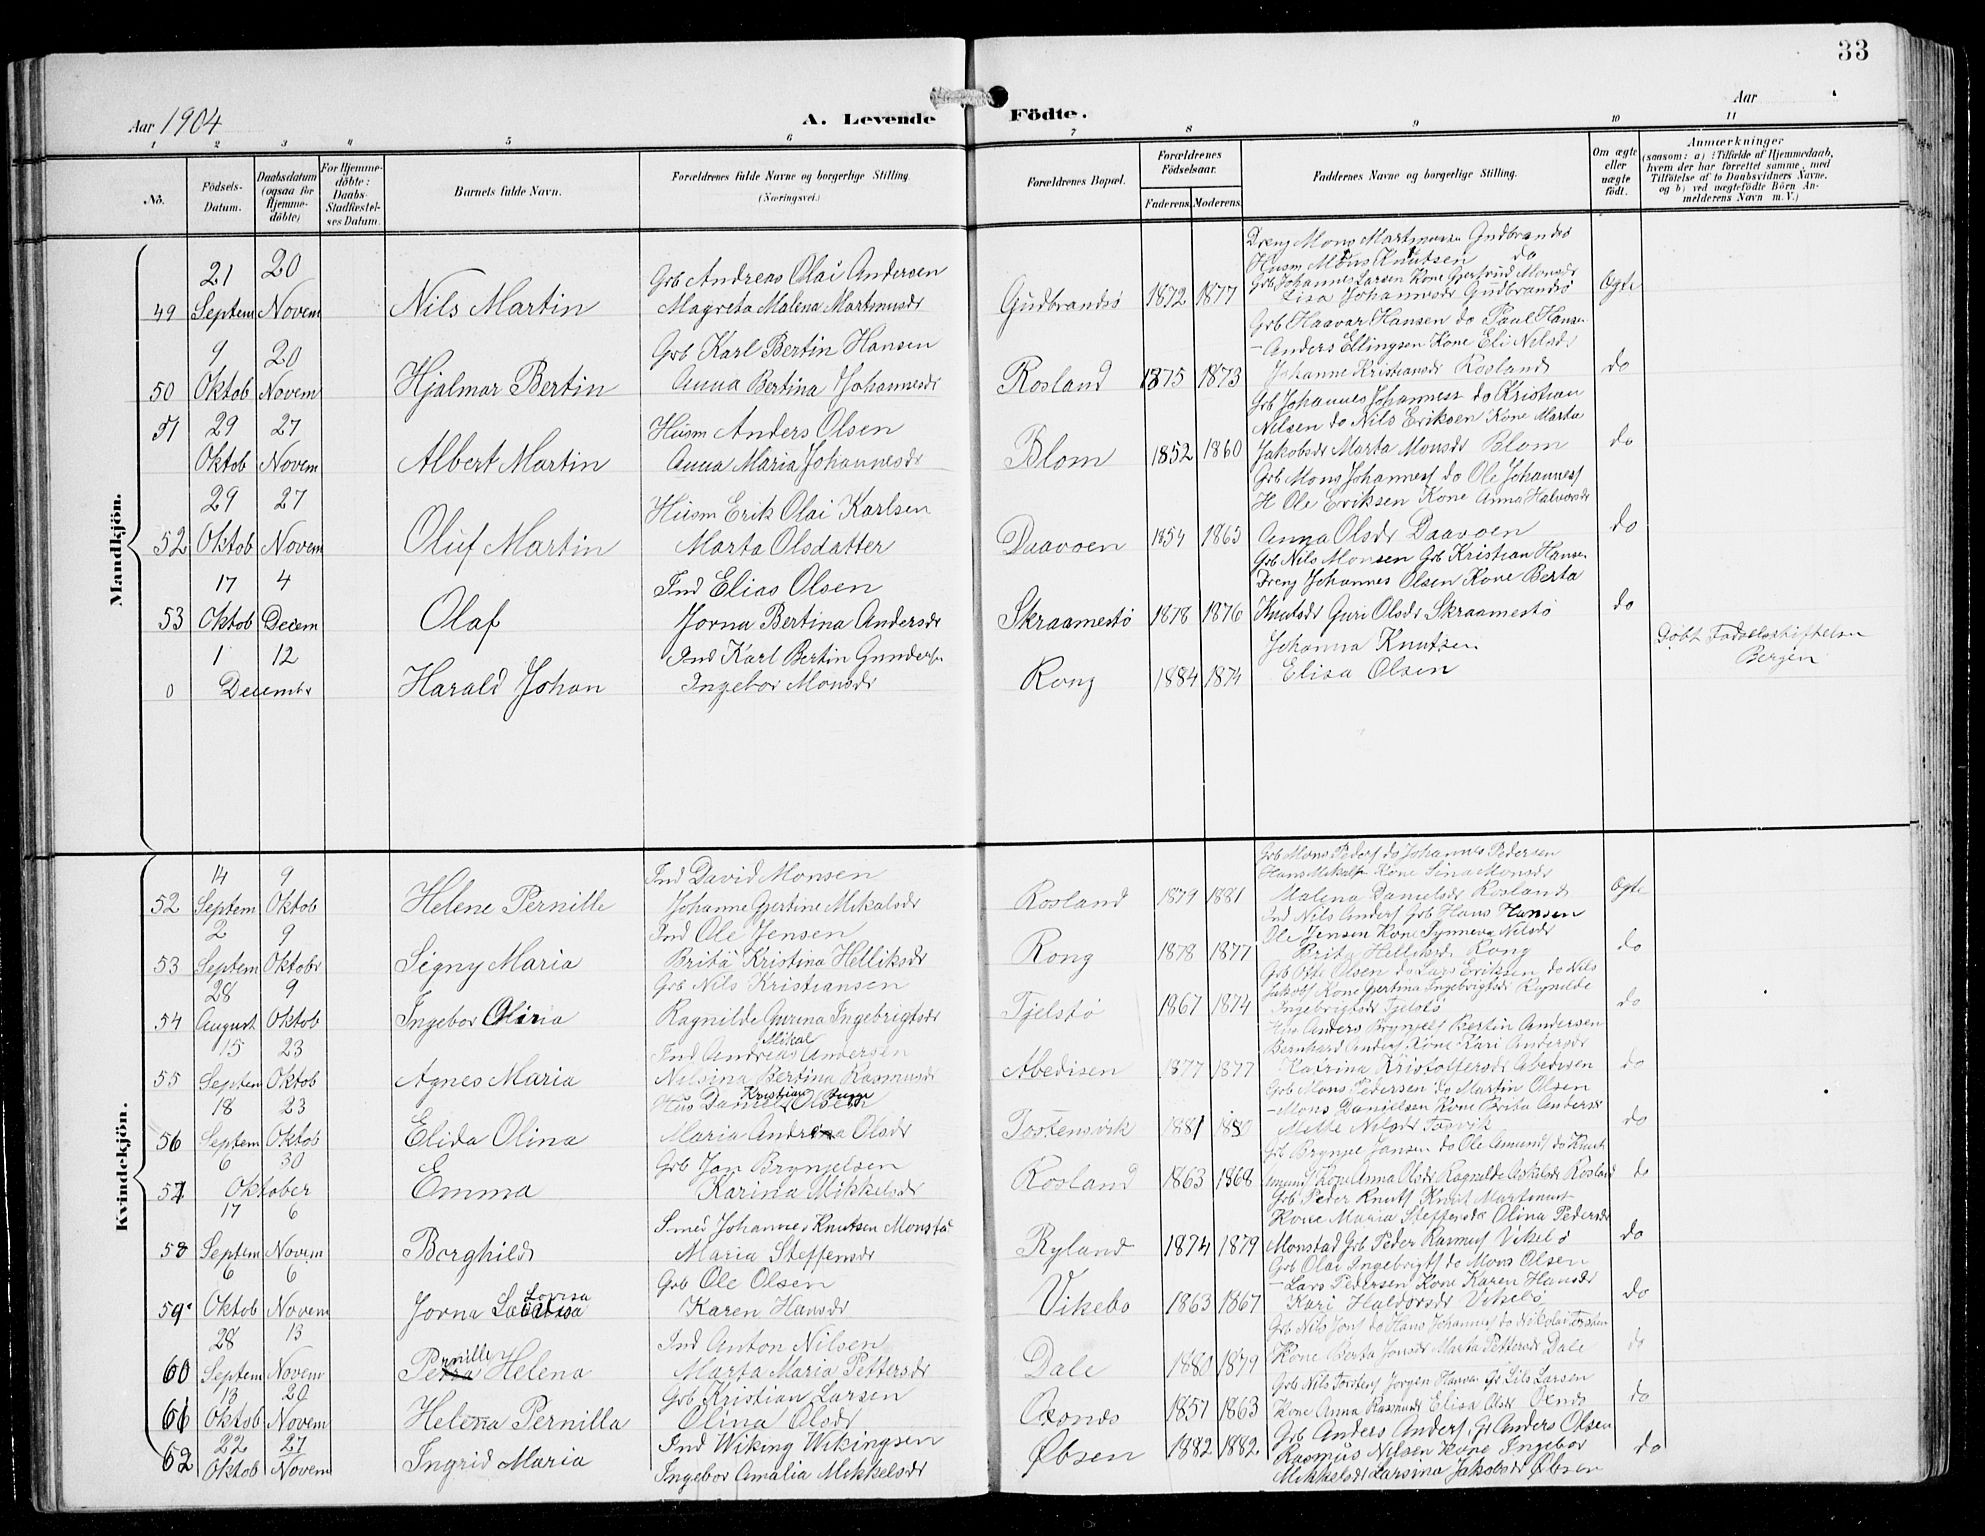 33
Aar 1904
A. Levende Födte.
Aar
1 2 3 4 5 6 7 8 9 10 11
No.
Födsels-Datum.
Daabsdatum (ogsaa för Hjemmedöbte)
For Hjemmedöbte: Daabs Stadfæstelses Datum.
Barnets fulde Navn.
Forældrenes fulde Navne og borgerlige Stilling. (Næringsvei.)
Forældrenes Bopæl.
Forældrenes Födselsaar.
Faderens. Moderens.
Faddernes Navne og borgerlige Stilling.
Om ægte eller uægte födt.
Anmærkninger
(saasom: a) i Tilfælde af Hjemmedaab, hvem der har forrettet samme, med Tilföielse af to Daabsvidners Navne, og b) ved uægtefödte Börn Anmelderens Navn m. V.)
Mandkjön.
49 21 Septem 20 Novem Nils Martin Grb Andreas Olai Andersen Magreta Malena Martinusdr Gudbrandsö 1872 1877 Dreng Mons Martinusen Gudbrandsö Husm Mons Knutsen do Grb Johannes Larsen Kone Gjertrud Monsdr Lisa Johannesdr Gudbrandsö Ægte
50 9 Oktob 20 Novem Hjalmar Bertin Grb Karl Bertin Hansen Anna Bertina Johannesdr Rosland 1875 1873 Grb Haavar Hansen do Paul Hansen – Anders Ellingsen Kone Eli Nilsdr Johanne Kristiansdr Rosland do
51 29 Oktob 27 Novem Albert Martin Husm Anders Olsen Anna Maria Johannesdr Blom 1852 1860 Grb Johannes Johanness do Kristian Nilsen do Nils Eriksen Kone Marta Jakobsdr Marta Monsdr Blom do
52 29 Oktob 27 Novem Oluf Martin Husm Erik Olai Karlsen Marta Olsdatter Daavöen 1854 1863 Grb Mons Johannesf do Ole Johannesf H Ole Eriksen Kone Anna Halvorsdr Anna Olsdr Daavoen do
53 17 Oktob 4 Decem Olaf Ind Elias Olsen Jorna Bertina Andersdr Skraamestö 1878 1876 Grb Nils Monsen Grb Kristian Hansen Dreng Johannes Olsen Kone Berta Knutsdr Guri Olsdr Skraamestö do
0 1 12 Decembr Harald Johan Ind Karl Bertin Gunders Ingebor Monsdr Rong 1884 1874 Johanna Knutsen Elisa Olsen Döbt Födselsstiftelsen Bergen
Kvindekjön.
52 14 Septem 9 Oktob Helene Pernille Ind David Monsen Johanne Gjertine Mikalsdr Rosland 1879 1881 Grb Mons Pedersf do Johannes Pedersen Hans Mikalsf Kone Sina Monsdr Malena Danielsdr Rosland Ægte
53 2 Septem 9 Oktobr Signy Maria Ind Ole Jensen Brita Kristina Helliksdr Rong 1878 1877 Ind Nils Andersf Grb Hans Hansen Ole Jensen Kone Synneva Nilsdr Brita Helliksdr Rong do
54 28 August 9 Oktob Ingebor Oliria Grb Nils Kristiansen Ragnilde Gurina Ingebrigtsdr Tjelstö 1867 1874 Grb Olsen do Lars Eriksen do Nils Jakobsf Kone Gjertina Ingebrigtsdr Ragnilde Ingebrigtsdr Tjelstö do
55 15 Septem 23 Oktob Agnes Maria Ind Andreas Mikal Andersen Nilsina Bertina Rasmusdr Abedisen 1877 1877 Hus Anders Brynjelsf Bertin Andersen Bernhard Andersf Kone Kari Andersdr Katrina Kristoffersdr Abedisen do
56 18 Septem 23 Oktob Elida Olina Hus Daniel Kristian Olsen Maria Andrea Olsdr Tostensvik 1881 1880 Grb Mons Pedersen do Martin Olsen – Mons Danielsen Kone Brita Andersdr Mette Nilsdr do
57 6 30 Oktober Emma Grb Jan Brynjelsen Karina Mikkelsdr Rosland 1863 1868 Grb Brynjel Jansen do Ole Amundsf do Knut Amundsf Kone Anna Olsdr Ragnilde Askelsdr Rosland do
58 17 Septem 6 Novem Borghild Smed Johannes Knutsen Monstad Maria Steffensdr Ryland 1874 1879 Grb Peder Knutsf Knut Martinusf Kone Maria Steffensdr Olina Pedersdr Monstad Grb Peder Rasmusf Vikebö do
59 6 Oktob 6 Novem Jorna Lovisa Grb Ole Olsen Karen Hansdr Vikebo 1863 1867 Grb Olai Ingebrigtsf do Mons Olsen – Lars Pedersen Kone Karen Hansdr Kari Haldorsdr Vikebö do
60 28 Septem 13 Novem Pernille Helena Ind Anton Nilsen Marta Maria Pettersdr Dale 1880 1879 Grb Nils Jonsf do Hans Johannesf do Nikolai Kone Berta Jonsdr Marta Pettersdr Dale do
61 13 Oktob 20 Novem Helena Pernilla Grb Kristian Larsen Olina Olsdr 1857 1863 Grb Nils Torstensf Jørgen Hansen Nils Larsen Kone Anna Rasmusdr Elisa Olsdr do
62 22 Oktob 27 Novem Ingrid Maria Ind Wiking Wikingsen Ingebor Amalia Mikkelsdr Øbsen 1882 1882 Grb Anders Andersf Gr Anders Olsen Rasmus Nilsen Kone Ingebor Mikkelsdr Larsina Jakobsdr Øbsen do